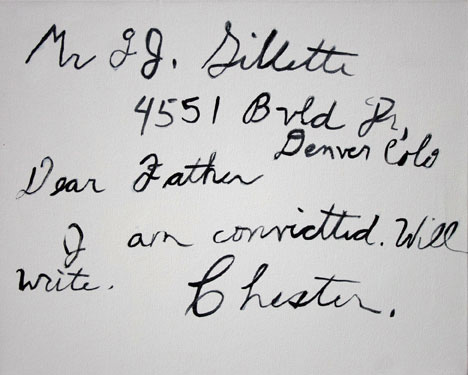 Mr J J. Gillette
4551 Bvld Dr,
Denver Colo
Dear Father
I am convictted. Will
write.
Chester.